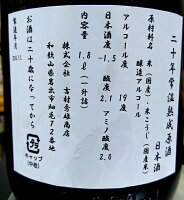 二十年常温熟成原酒
日本酒
原材料名 米(国産)・米こうじ(国産米)
醸造アルコール
アルコール度 19度
日本酒度 -1.5 酸度 2.1 アミノ酸度 2.0
内容量 1.8ℓ(一升詰)
株式会社 吉村秀雄商店
和歌山県岩出市畑毛72番地
お酒は二十歳になってから
製造年月
キャップ
(中栓)